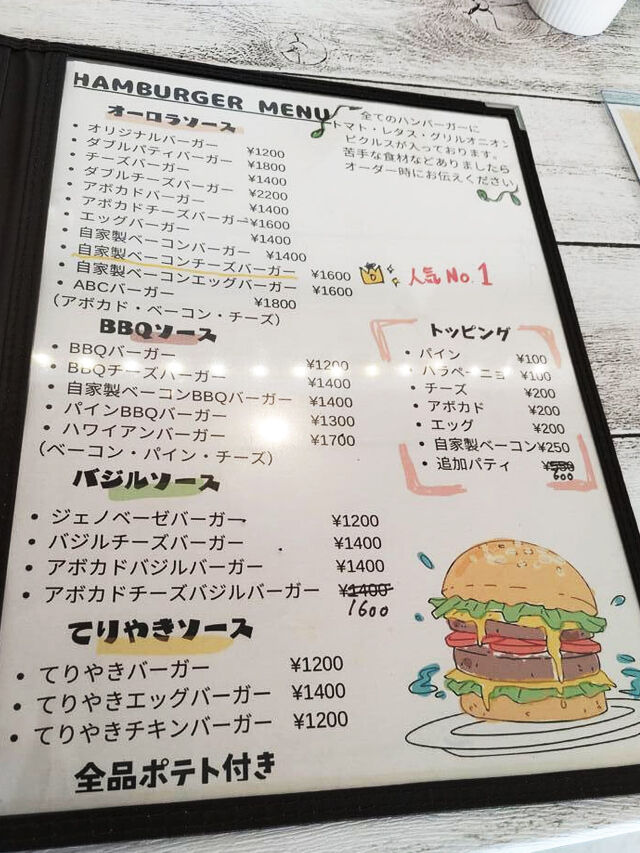 HAMBURGER MENU
全てのハンバーガーに
トマト・レタス・グリルオニオン
ピクルスが入っております。
苦手な食材などありましたら
オーダー時にお伝えください
オーロラソース
・オリジナルバーガー ¥1200
・ダブルパティバーガー ¥1800
・チーズバーガー ¥1400
・ダブルチーズバーガー ¥2200
・アボカドバーガー ¥1400
・アボカドチーズバーガー ¥1600
・エッグバーガー ¥1400
・自家製ベーコンバーガー ¥1400
・自家製ベーコンチーズバーガー ¥1600 人気No.1
・自家製ベーコンエッグバーガー ¥1600
・ABCバーガー ¥1800
（アボカド・ベーコン・チーズ）
BBQソース
・BBQバーガー ¥1200
・BBQチーズバーガー ¥1400
・自家製ベーコンBBQバーガー ¥1400
・パインBBQバーガー ¥1300
・ハワイアンバーガー ¥1700
（ベーコン・パイン・チーズ）
トッピング
・パイン ¥100
・ハラペーニョ ¥100
・チーズ ¥200
・アボカド ¥200
・エッグ ¥200
・自家製ベーコン¥250
・追加パティ ¥550
600
バジルソース
・ジェノベーゼバーガー ¥1200
・バジルチーズバーガー ¥1400
・アボカドバジルバーガー ¥1400
・アボカドチーズバジルバーガー ¥1400
1600
てりやきソース
・てりやきバーガー ¥1200
・てりやきエッグバーガー ¥1400
・てりやきチキンバーガー ¥1200
全品ポテト付き